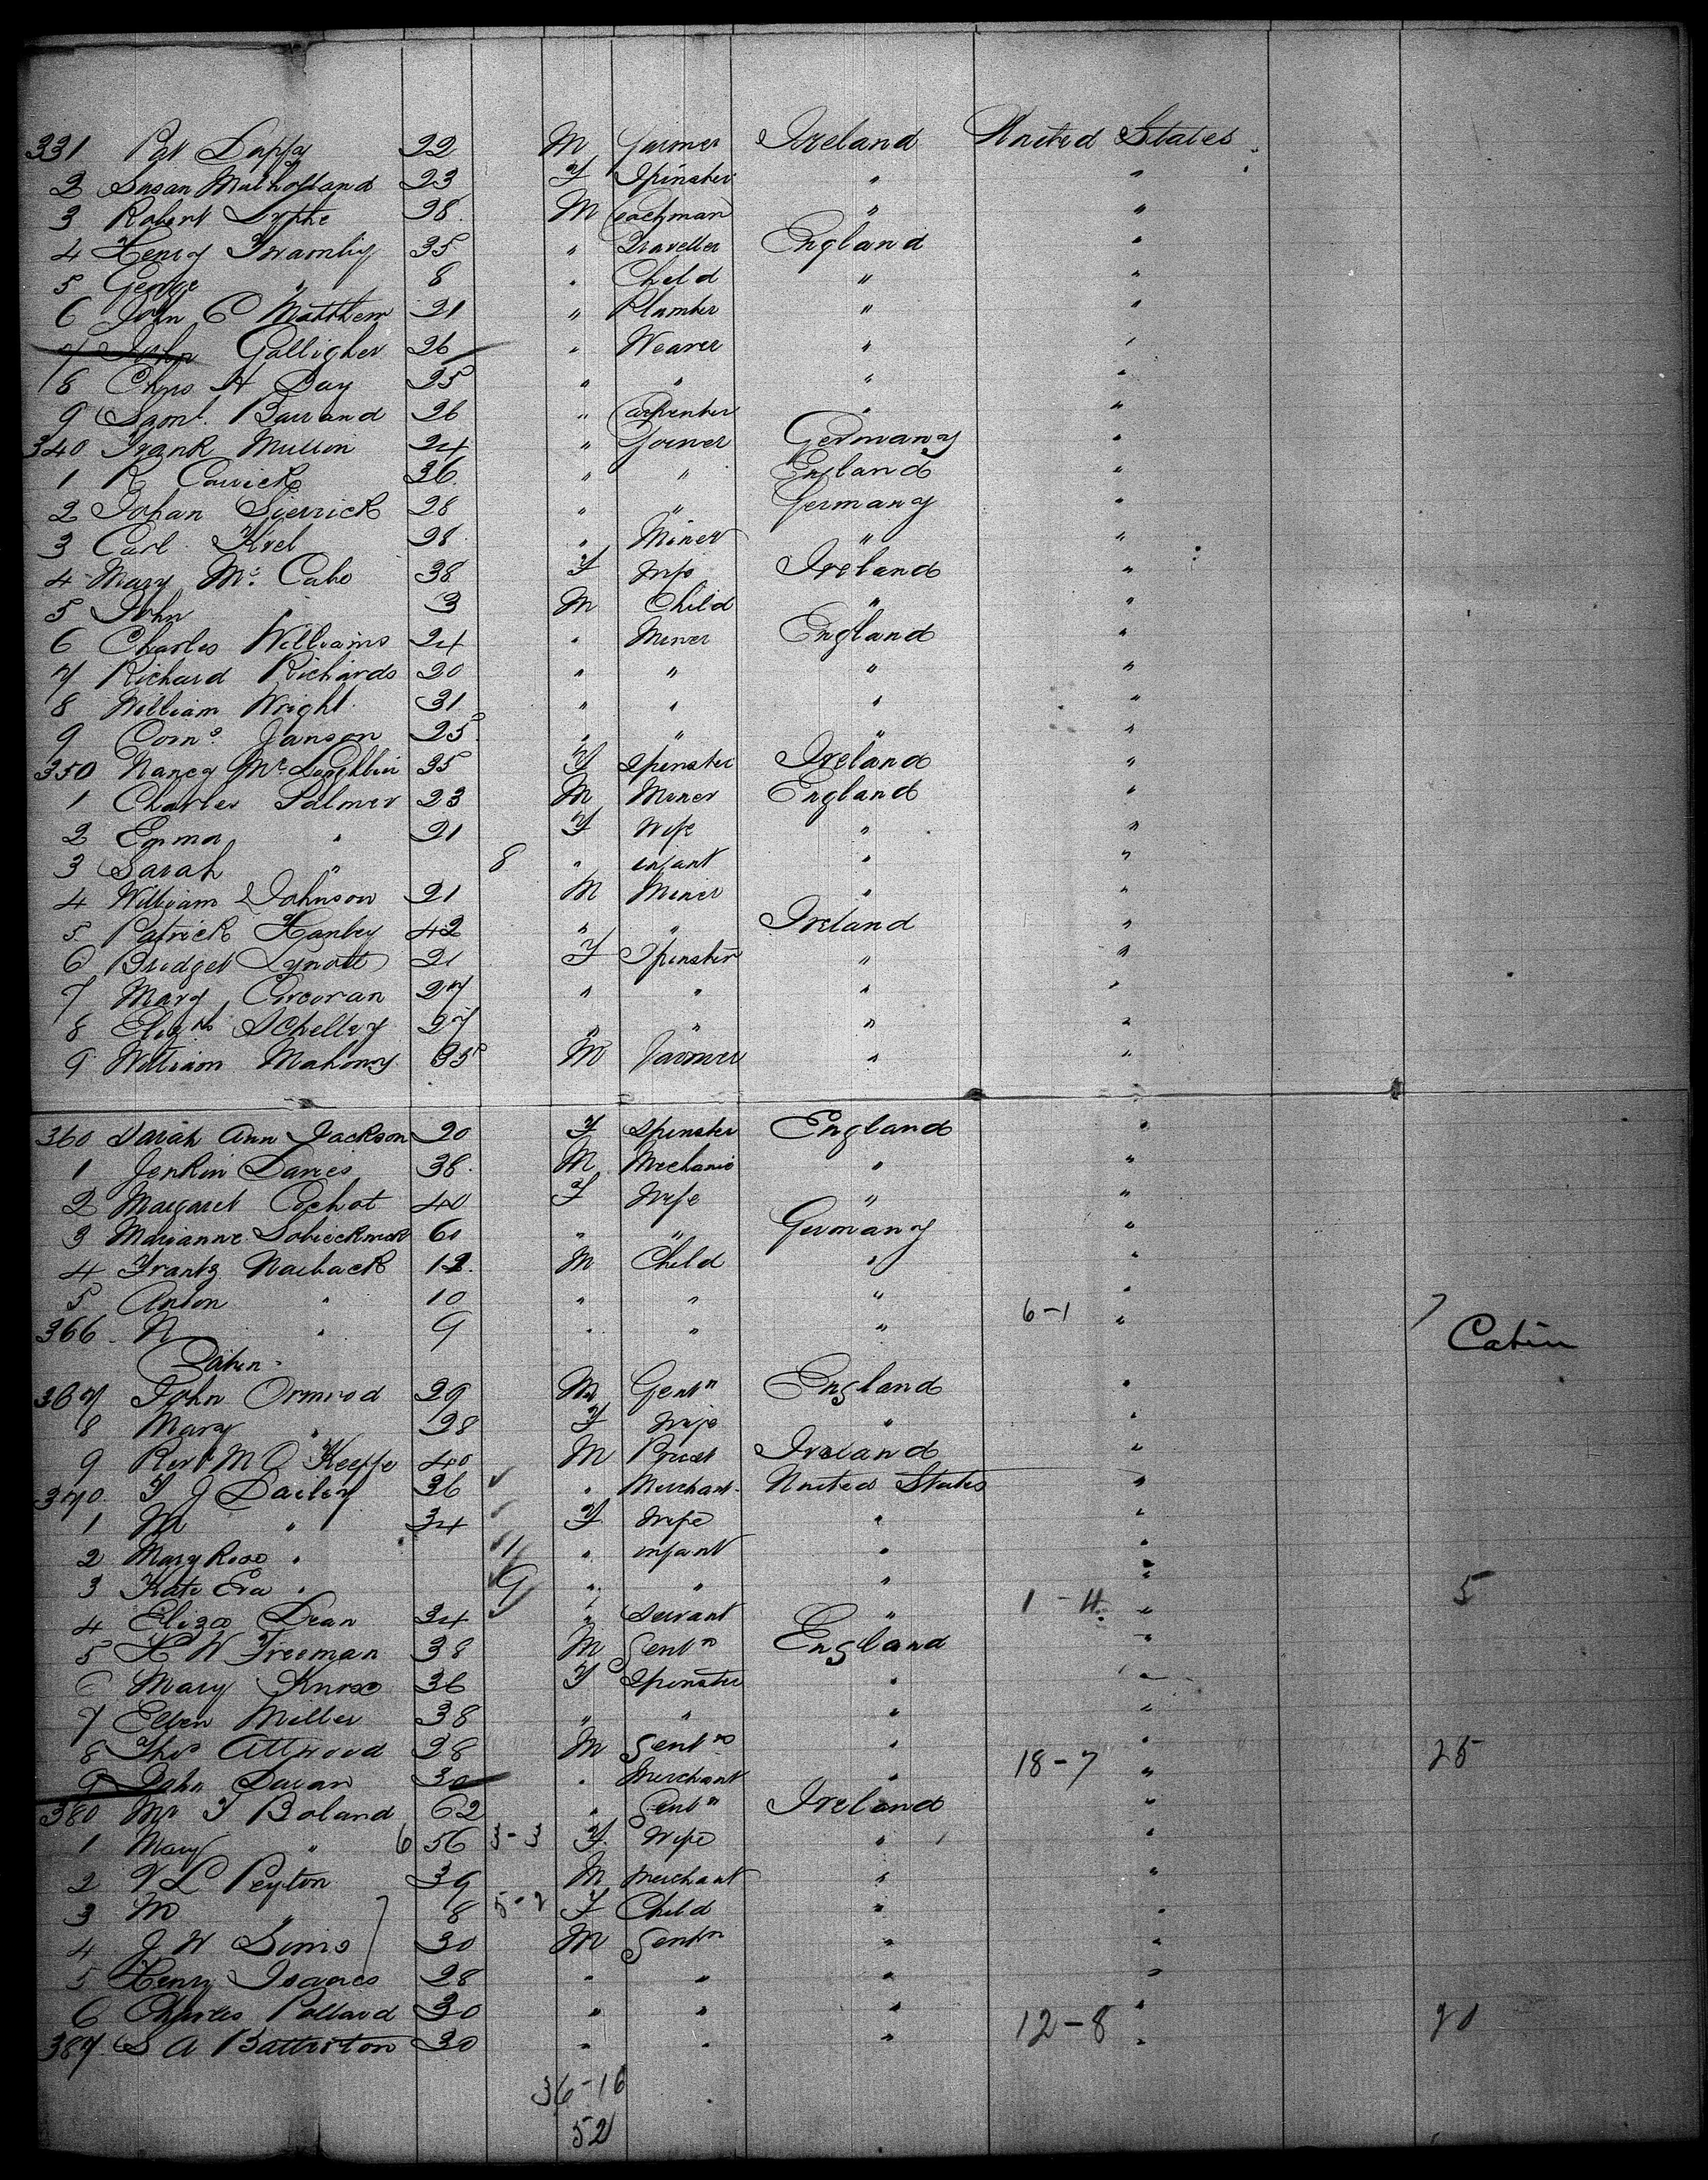 331 Pat Duffy 22 M Farmer Ireland United States
2 Susan Mulholland 23 F Spinster " "
3 Robert 28 M Coachman " "
4 Henry Bramley 35 " Traveller England "
5 George " 8 " Child " "
6 John C Matthew 21 " Plumber " "
7 John Galligher 26 " Weaver " "
8 Chas H Day 25 " " " "
9 Saml. Barrand 26 " Carpenter " "
340 Frank Mullin 24 " Joiner Germany "
1 R Carrick 36 " " England "
2 Johan Sierrick 28 " " Germany "
3 Carl 28 " Miner " "
4 Mary Mc Cabe 38 F Wife Ireland "
5 John " 3 M Child " "
6 Charles Williams 24 " Miner England "
7 Richard Richards 20 " " " "
8 William Wright 31 " " " "
9 Corns. Janson 25 " " " "
350 Nancy Mc Loughlin 35 F Spinster Ireland "
1 Charles Palmer 23 M Miner England "
2 Emma " 21 F Wife " "
3 Sarah " 8 " infant " "
4 William Johnson 21 M Miner " "
5 Patrick Hanley 42 " " Ireland "
6 Bridget Lynott 21 F Spinster " "
7 Mary Corcoran 27 " " " "
8 Elizth Schelley 27 " " " "
9 William Mahony 35 M Farmer " "
360 Sarah Ann Jackson 20 F Spinster England "
1 Jenkin Davies 38 M Mechanic " "
2 Margaret Cochot 40 F Wife " "
3 Marianne 60 " " Germany "
4 Frantz Naiback 12 M Child " "
5 Anton " 10 " " " "
366 N " 9 " " " 6-1 "
Cabin
367 John Ormrod 29 M Gentn England "
8 Mary " 28 F Wife " "
9 Revd M O Keeffe 40 M Priest Ireland "
370 T J Dailey 36 " Merchant United States "
1 M " 34 F Wife " "
2 Mary Rose " 11 " infant " "
3 Kate Eva " 9 " " " "
4 Eliza Dean 34 " Servant " 1-4 " 5
5 H W Freeman 38 M Gentn England "
6 Mary Knox 36 F Spinster " "
7 Ellen Miller 38 " " " "
8 Thos Attwood 28 M Gentn " "
9 John Davan 30 " Merchant " 18-7 " 25
380 Mr T Boland 62 " Gentn Ireland "
1 Mary " 6 56 3-3 F Wife " "
2 V L Peyton 39 M Merchant " "
3 M " 8 5-2 F Child " "
4 J W Sims 30 M Gentn " "
5 Henry Isaacs 28 " " " "
6 Charles Pollard 30 " " " "
387 S A Batterton 30 " " " 12-8 " 20
Cabin
36-16
52